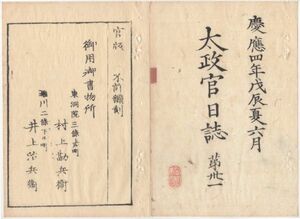 慶應四年戊辰夏六月
太政官日誌 第卅一
官版 不許翻刻
御用御書物所
東洞院三條上ル町
村上勘兵衛
堀川二條下ル町
井上治兵衛